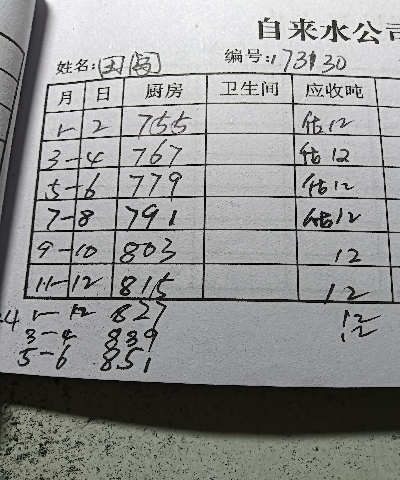 自来水公司
姓名: 编号: 173130
月 日 厨房 卫生间 应收吨
1-2 755 估12
3-4 767 估12
5-6 779 估12
7-8 791 估12
9-10 803 12
11-12 815 12
1-12 827 12
3-4 839 12
5-6 851